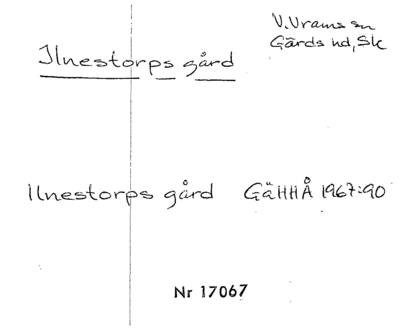 Ilnestorps gård
V. Vrams sn
Gärds hd, Sk
Ilnestorps gård GäHHÅ 1967:90
Nr 17067